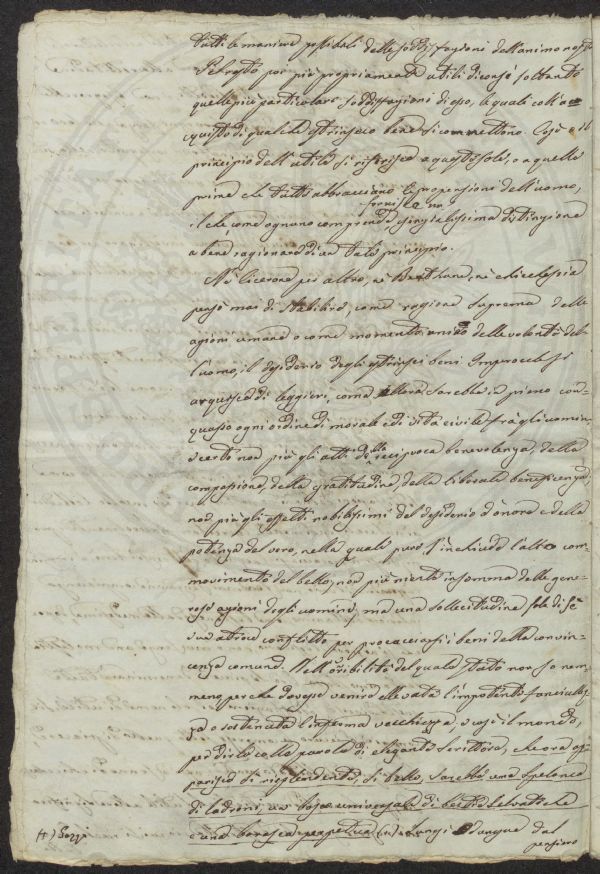 tutte le maniere possibili delle soddisfazioni dell'animo nostro
Pel resto poi più propriamente utili diconsi soltanto
quelle più particolari soddisfazioni di esso, le quali coll'ac
quisto di qualche estrinseco bene si connettono. Così o il
principio dell'utile si riferisce a queste sole, o a quelle
prime che tutte abbracciano le propensioni dell'uomo,
fornisce un
il che, come ognuno comprende, essenzialissima distinzione
a bene ragionare di un tale principio.
Nè Cicerone per altro, nè Bentham, nè chicchessia
pensò mai di stabilire, come ragione suprema delle
azioni umane o come momento unico delle volontà del
l'uomo, il desiderio degli estrinseci beni. Imperocchè si
arguisce di leggieri, come allora sarebbe in pieno con-
quasso ogni ordine di morale e di vita civile fra gli uomini,
e certo non più gli atti della reciproca benevolenza, della
compassione, della gratitudine, della liberale beneficenza,
non più gli effetti nobilissimi del desiderio d'onore e della
potenza del vero, nella quale pure s'inchiude l'alto com-
movimento del bello, non più niente insomma delle gene-
rose azioni degli uomini, ma una sollecitudine sola di se
in un atroce conflitto per procacciarsi i beni della convin-
cenza comune. Nell'orribilità del quale stato non so nem-
meno perchè dovesse venire allevata l'impotente fanciullez
za o sostenuta l'inferma vecchiezza, e così il mondo,
per dirlo colle parole di elegante scrittore, che ora ap-
parisce di risplendente, sì bello, sarebbe una spelonca
di ladroni, un bosco universale di bestie selvatiche
e una burrasca perpetua (1). Lungi dunque dal
pensiero
(1) Gozzi